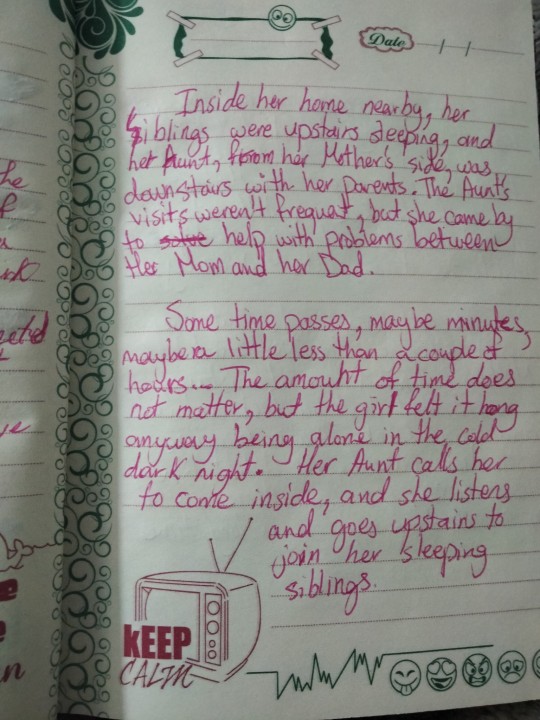 Date
Inside her home nearby, her
siblings were upstairs sleeping, and
her Aunt, from her Mother's side, was
downstairs with her parents. The Aunt's
visits weren't frequet, but she came by
to solve help with problems between
Her Mom and her Dad.
Some time passes, maybe minutes,
maybe a little less than a couple of
hours... The amount of time does
not matter, but the girl felt it long
anyway being alone in the cold
dark night. Her Aunt calls her
to come inside, and she listens
and goes upstairs to
join her sleeping
siblings.
KEEP
CALM